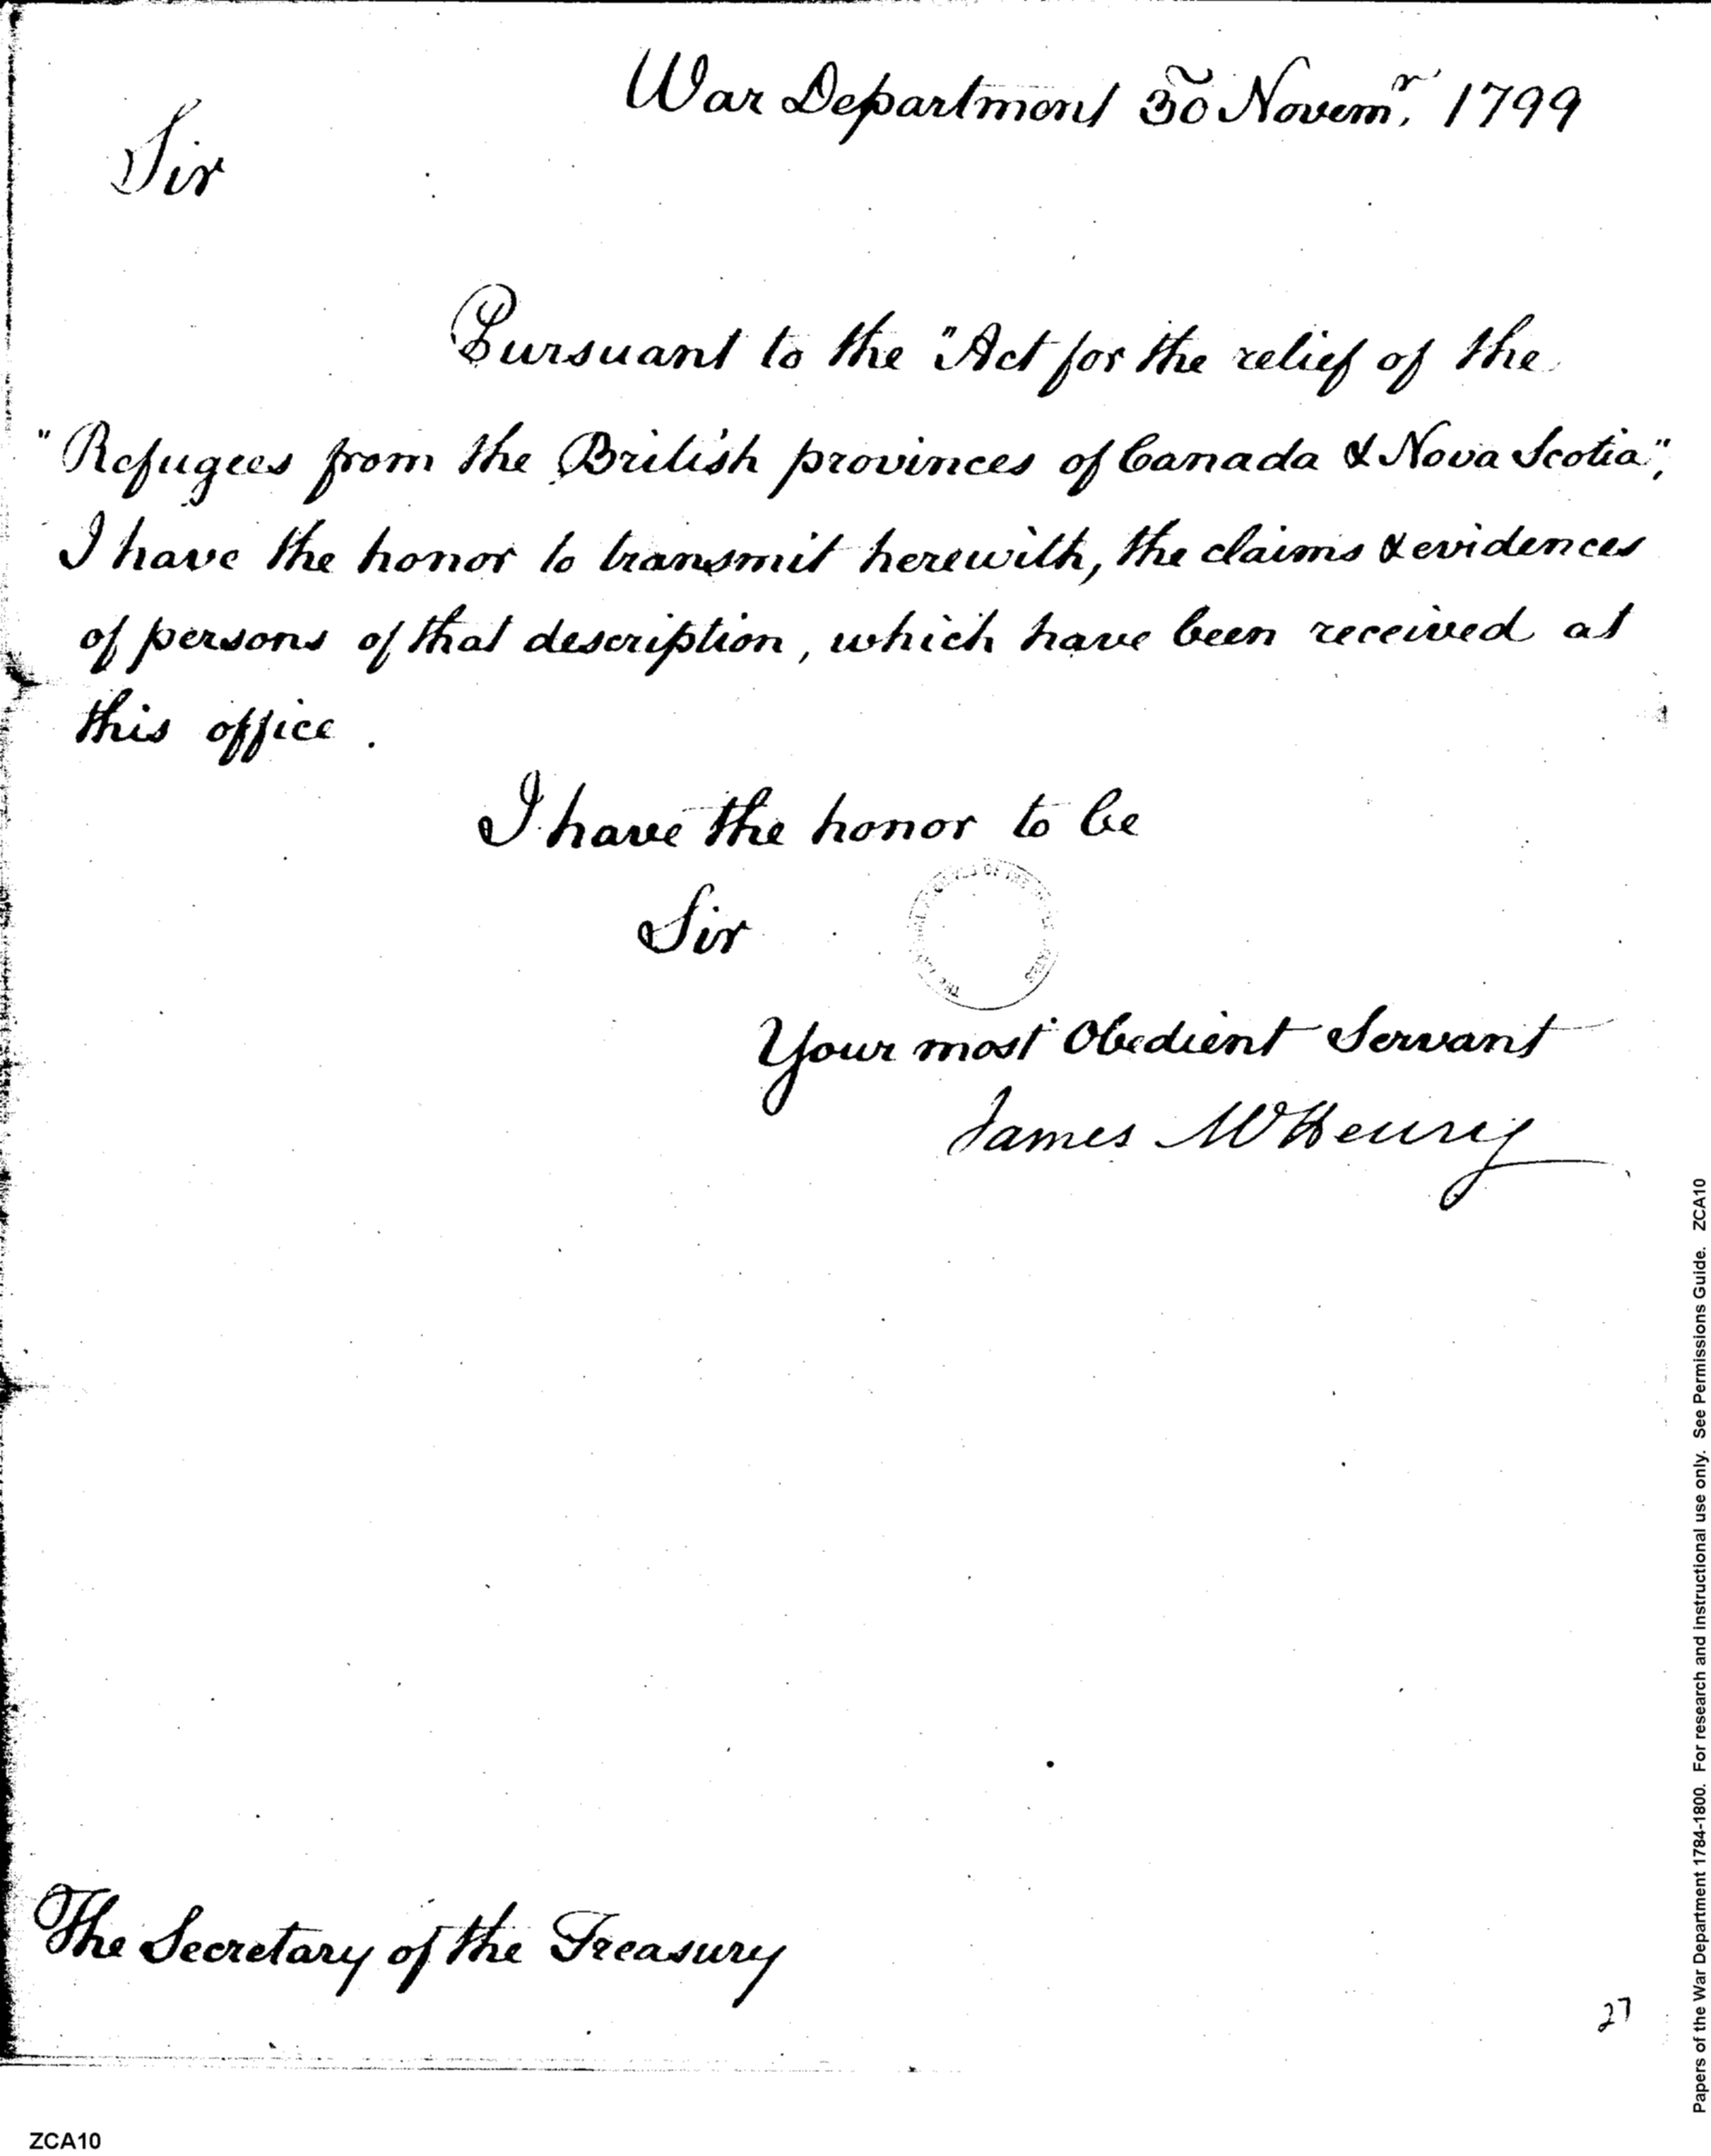 War Department 30 Novemr. 1799
Sir
Pursuant to the "Act for the relief of the
"Refugees from the British provinces of Canada & Nova Scotia",
I have the honor to transmit herewith, the claims & evidences
of persons of that description, which have been received at
this office.
I have the honor to be
Sir
Your most Obedient Servant
James McHenry
The Secretary of the Treasury
27
ZCA10
Papers of the War Department 1784-1800. For research and instructional use only. See Permissions Guide. ZCA10